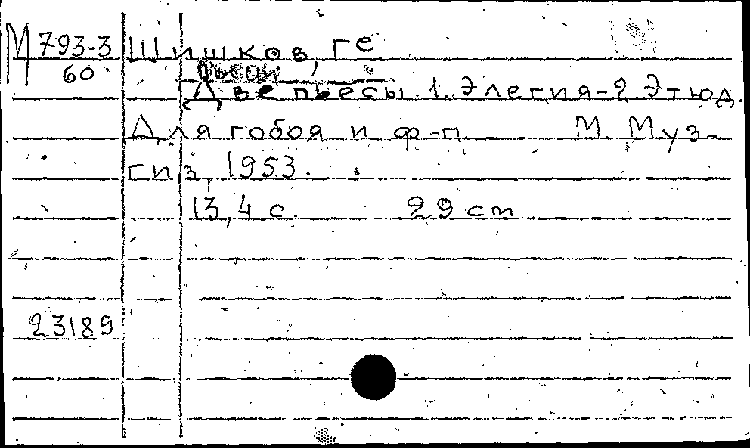 М 793-3 Шишков, Ге
60
Две пьесы. 1. Элегия-2 Этюд.
Для гобоя и ф-п. М. Муз-
гиз, 1953.
13,4 с. 29 cm
23189